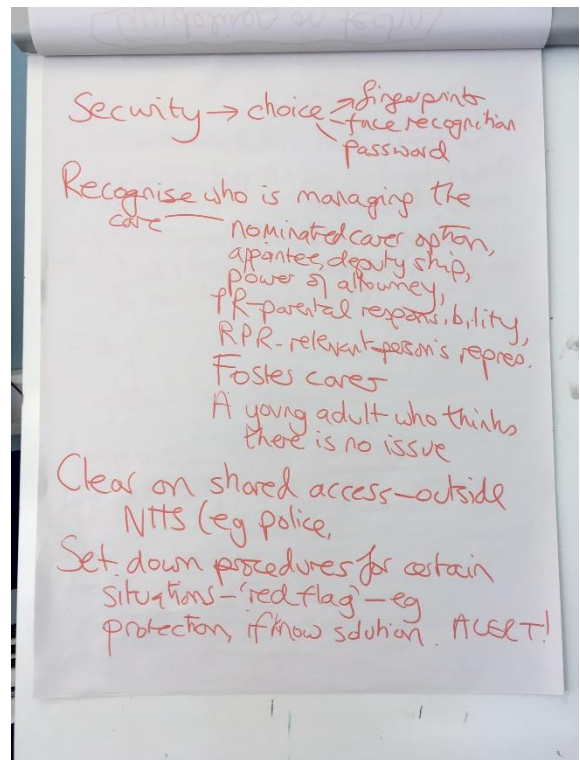 Security → choice → fingerprints
– face recognition
\ password
Recognise who is managing the
care — nominated carer option,
appointee, deputy ship,
power of attourney,
PR-parental responsibility,
RPR-relevant person's repres.
Foster carer
A young adult who thinks
there is no issue
Clear on shared access – outside
NHS (eg police,
Set down procedures for certain
situations – 'red flag' – eg
protection, if know solution. ALERT!